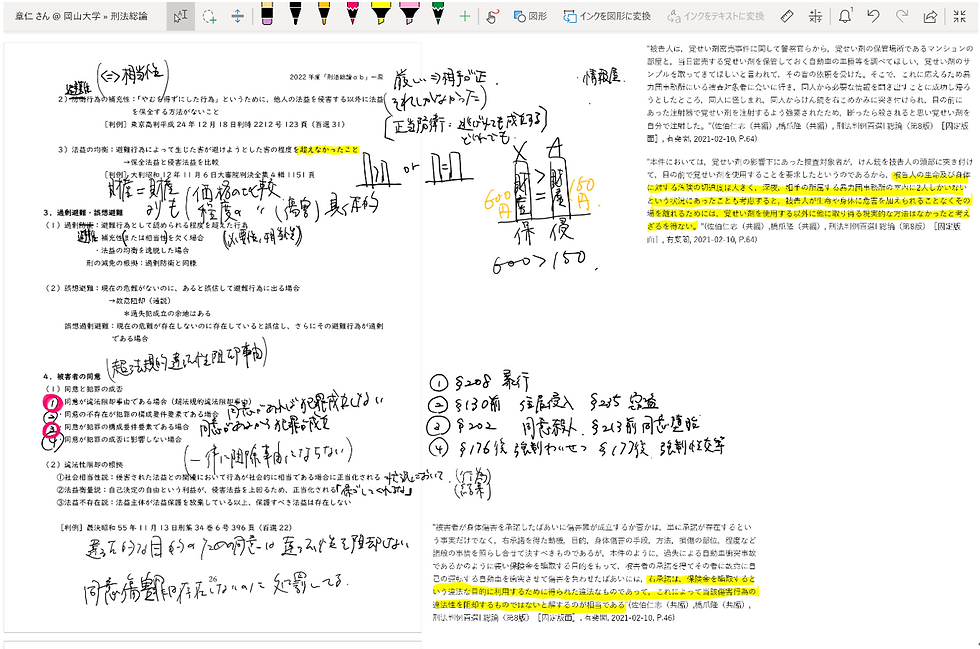 章仁 さん @ 岡山大学 » 刑法総論
図形
インクを図形に変換
インクをテキストに変換
2022 年度「刑法総論ob」一原
(⇔相当性)
避難
2）防衛行為の補充性：「やむを得ずにした行為」というために、他人の法益を侵害する以外に法益
を保全する方法がないこと
［判例］東京高判平成 24 年 12 月 18 日判時 2212 号 123 頁（百選31）
3）法益の均衡：避難行為によって生じた害が避けようとした害の程度を超えなかったこと
→保全法益と侵害法益を比較
［判例］大判昭和 12 年 11 月 6 日大審院判決全集 4 輯 1151 頁
財産＝財産
価格の比較
程度の 〃 (傷害) 具体的
3．過剰避難・誤想避難
（1）過剰防衛：避難行為として認められる程度を超えた行為
避難
・補充性（または相当性）を欠く場合
(必要性、相当性)
・法益の均衡を逸脱した場合
刑の減免の根拠：過剰防衛と同様
（2）誤想避難：現在の危難がないのに、あると誤信して避難行為に出る場合
→故意阻却（通説）
＊過失犯成立の余地はある
誤想過剰避難：現在の危難が存在しないのに存在していると誤信し、さらにその避難行為が過剰
である場合
(超法規的違法性阻却事由)
4．被害者の同意
（1）同意と犯罪の成否
① 同意が違法阻却事由である場合（超規的違法阻却事由）
② 同意の不存在が犯罪の構成要件要素である場合 同意があれば犯罪成立しない
③ 同意が犯罪の構成要件要素である場合 同意があるから犯罪が成立
④ 同意が犯罪の成否に影響しない場合
(一律に阻却事由にならない)
（2）違法性阻却の根拠
①社会相当性説：侵害された法益との関連において行為が社会的に相当である場合に正当化される
状況において
(行為)
(結果)
②法益衡量説：自己決定の自由という利益が、侵害法益を上回るため、正当化される
③法益不存在説：法益主体が法益保護を放棄している以上、保護すべき法益は存在しない
［判例］最決昭和 55 年 11 月 13 日刑集 34 巻 6 号 396 頁（百選 22）
違法的な目的のための同意は違法性を阻却しない
同意傷害罪は存在しないのに処罰してる.
26
厳しい⇒相手が正
(それしかなかった)
[正当防衛：逃げれても成立する]
どれでも
or
X
A
財産
＞
＝
財産
600円
150円
保
侵
600 > 150.
情報屋.
① §208 暴行
② §130前 住居侵入 §235 窃盗
③ §202 同意殺人 §213前同意堕胎
④ §176後 強制わいせつ §177後 強制性交等
"被告人は、覚せい剤密売事件に関して警察官らから、覚せい剤の保管場所であるマンションの
部屋と、当日密売する覚せい剤を保管しておく自動車の車種等を調べてほしい、覚せい剤のサ
ンプルを取ってきてほしいと言われて、その旨の依頼を受けた。そこで、これに応えるため暴
力団事務所にいる捜査対象者に会いに行き、同人から必要な情報を聞き出すことに成功し帰ろ
うとしたところ、同人に怪しまれ、同人からけん銃を右こめかみに突き付けられ、目の前に
あった注射器で覚せい剤を注射するよう強要されたため、断ったら殺されると思い覚せい剤を
自分で注射した。"(佐伯仁志（共編）,橋爪隆（共編）, 刑法判例百選I 総論（第8版）　［固定版
面］, 有斐閣, 2021-02-10, P.64)
"本件においては、覚せい剤の影響下にあった捜査対象者が、けん銃を被告人の頭部に突き付け
て、目の前で覚せい剤を使用することを要求したというのであるから、被告人の生命及び身体
に対する危険の切迫度は大きく、深夜、相手の所属する暴力団事務所の室内に2人しかいない
という状況にあったことも考慮すると、被告人が生命や身体に危害を加えられることなくその
場を離れるためには、覚せい剤を使用する以外に他に取り得る現実的な方法はなかったと考え
ざるを得ない。"(佐伯仁志（共編）,橋爪隆（共編）, 刑法判例百選I 総論（第8版）　［固定版
面］, 有斐閣, 2021-02-10, P.64)
"被害者が身体傷害を承諾したばあいに傷害罪が成立するか否かは、単に承諾が存在するとい
う事実だけでなく、右承諾を得た動機、目的、身体傷害の手段、方法、損傷の部位、程度など
諸般の事情を照らし合せて決すべきものであるが、本件のように、過失による自動車衝突事故
であるかのように装い保険金を騙取する目的をもって、被害者の承諾を得てその者に故意に自
己の運転する自動車を衝突させて傷害を負わせたばあいには、右承諾は、保険金を騙取すると
いう違法な目的に利用するために得られた違法なものであって、これによって当該傷害行為の
違法性を阻却するものではないと解するのが相当である"(佐伯仁志（共編）,橋爪隆（共編）,
刑法判例百選I 総論（第8版）　［固定版面］, 有斐閣, 2021-02-10, P.46)